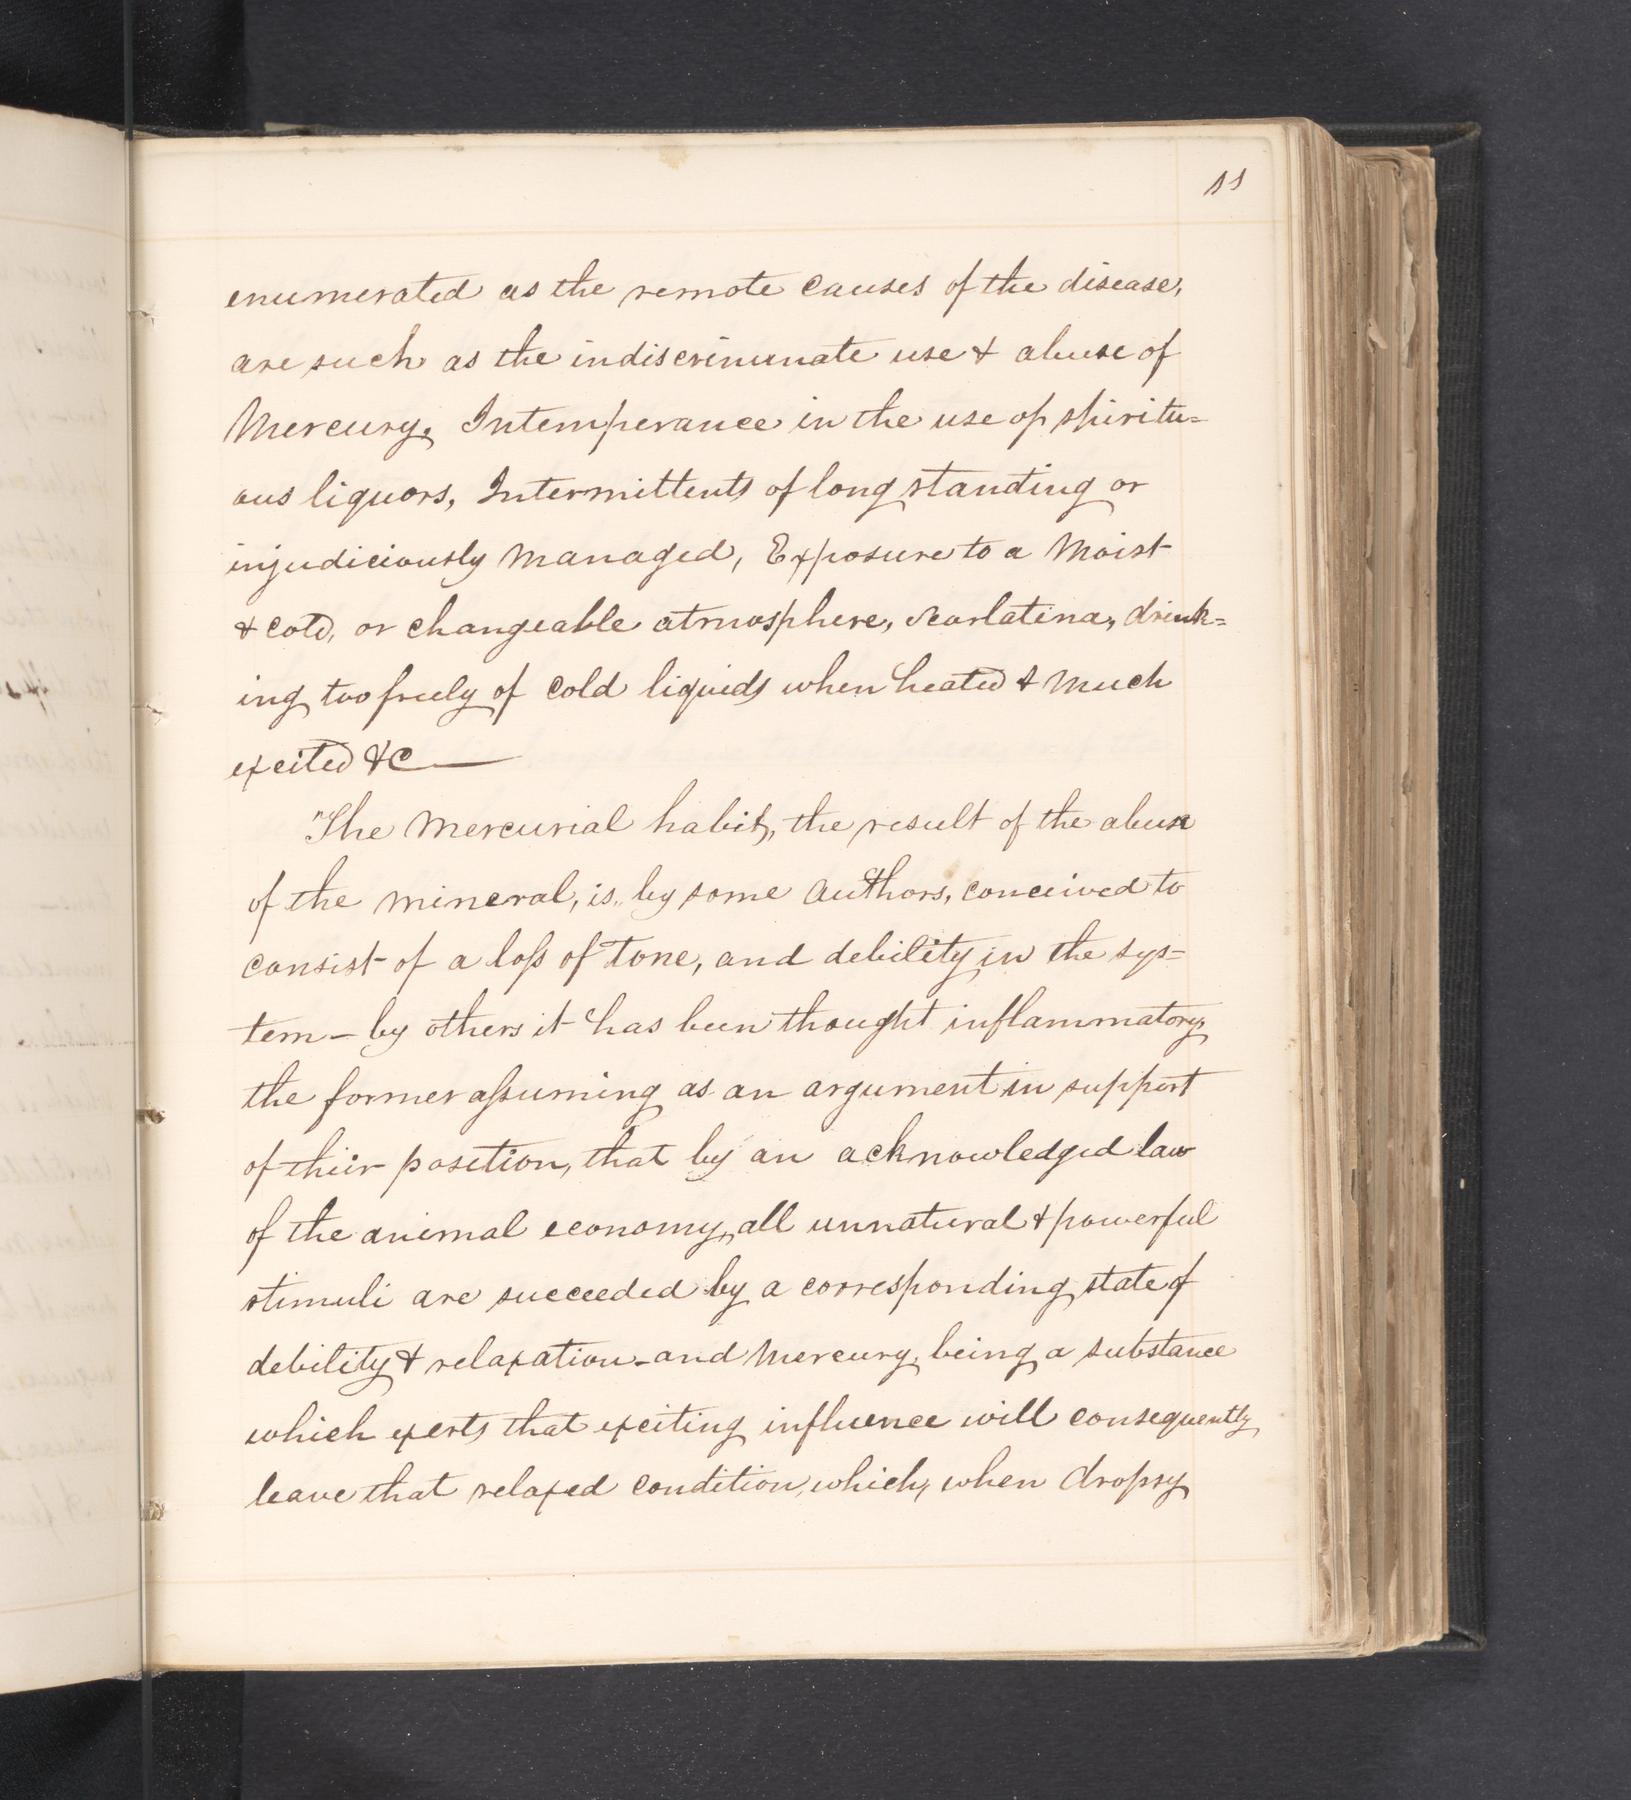 11
enumerated as the remote causes of the disease,
are such as the indiscriminate use & abuse of
Mercury. Intemperance in the use of spiritu=
ous liquors, Intermittents of long standing or
injudiciously managed, Exposure to a moist
& cold, or changeable atmosphere, Scarlatina, drink=
ing too freely of cold liquids when heated & much
excited &c —
The mercurial habit, the result of the abuse
of the mineral, is, by some authors, conceived to
consist of a loss of tone, and debility in the sys=
tem – by others it has been thought inflammatory,
the former assuming as an argument in support
of their position, that by an acknowledged law
of the animal economy, all unnatural & powerful
stimuli are succeeded by a corresponding state of
debility & relaxation – and mercury, being a substance
which exerts that exciting influence will consequently
leave that relaxed condition, which, when dropsy